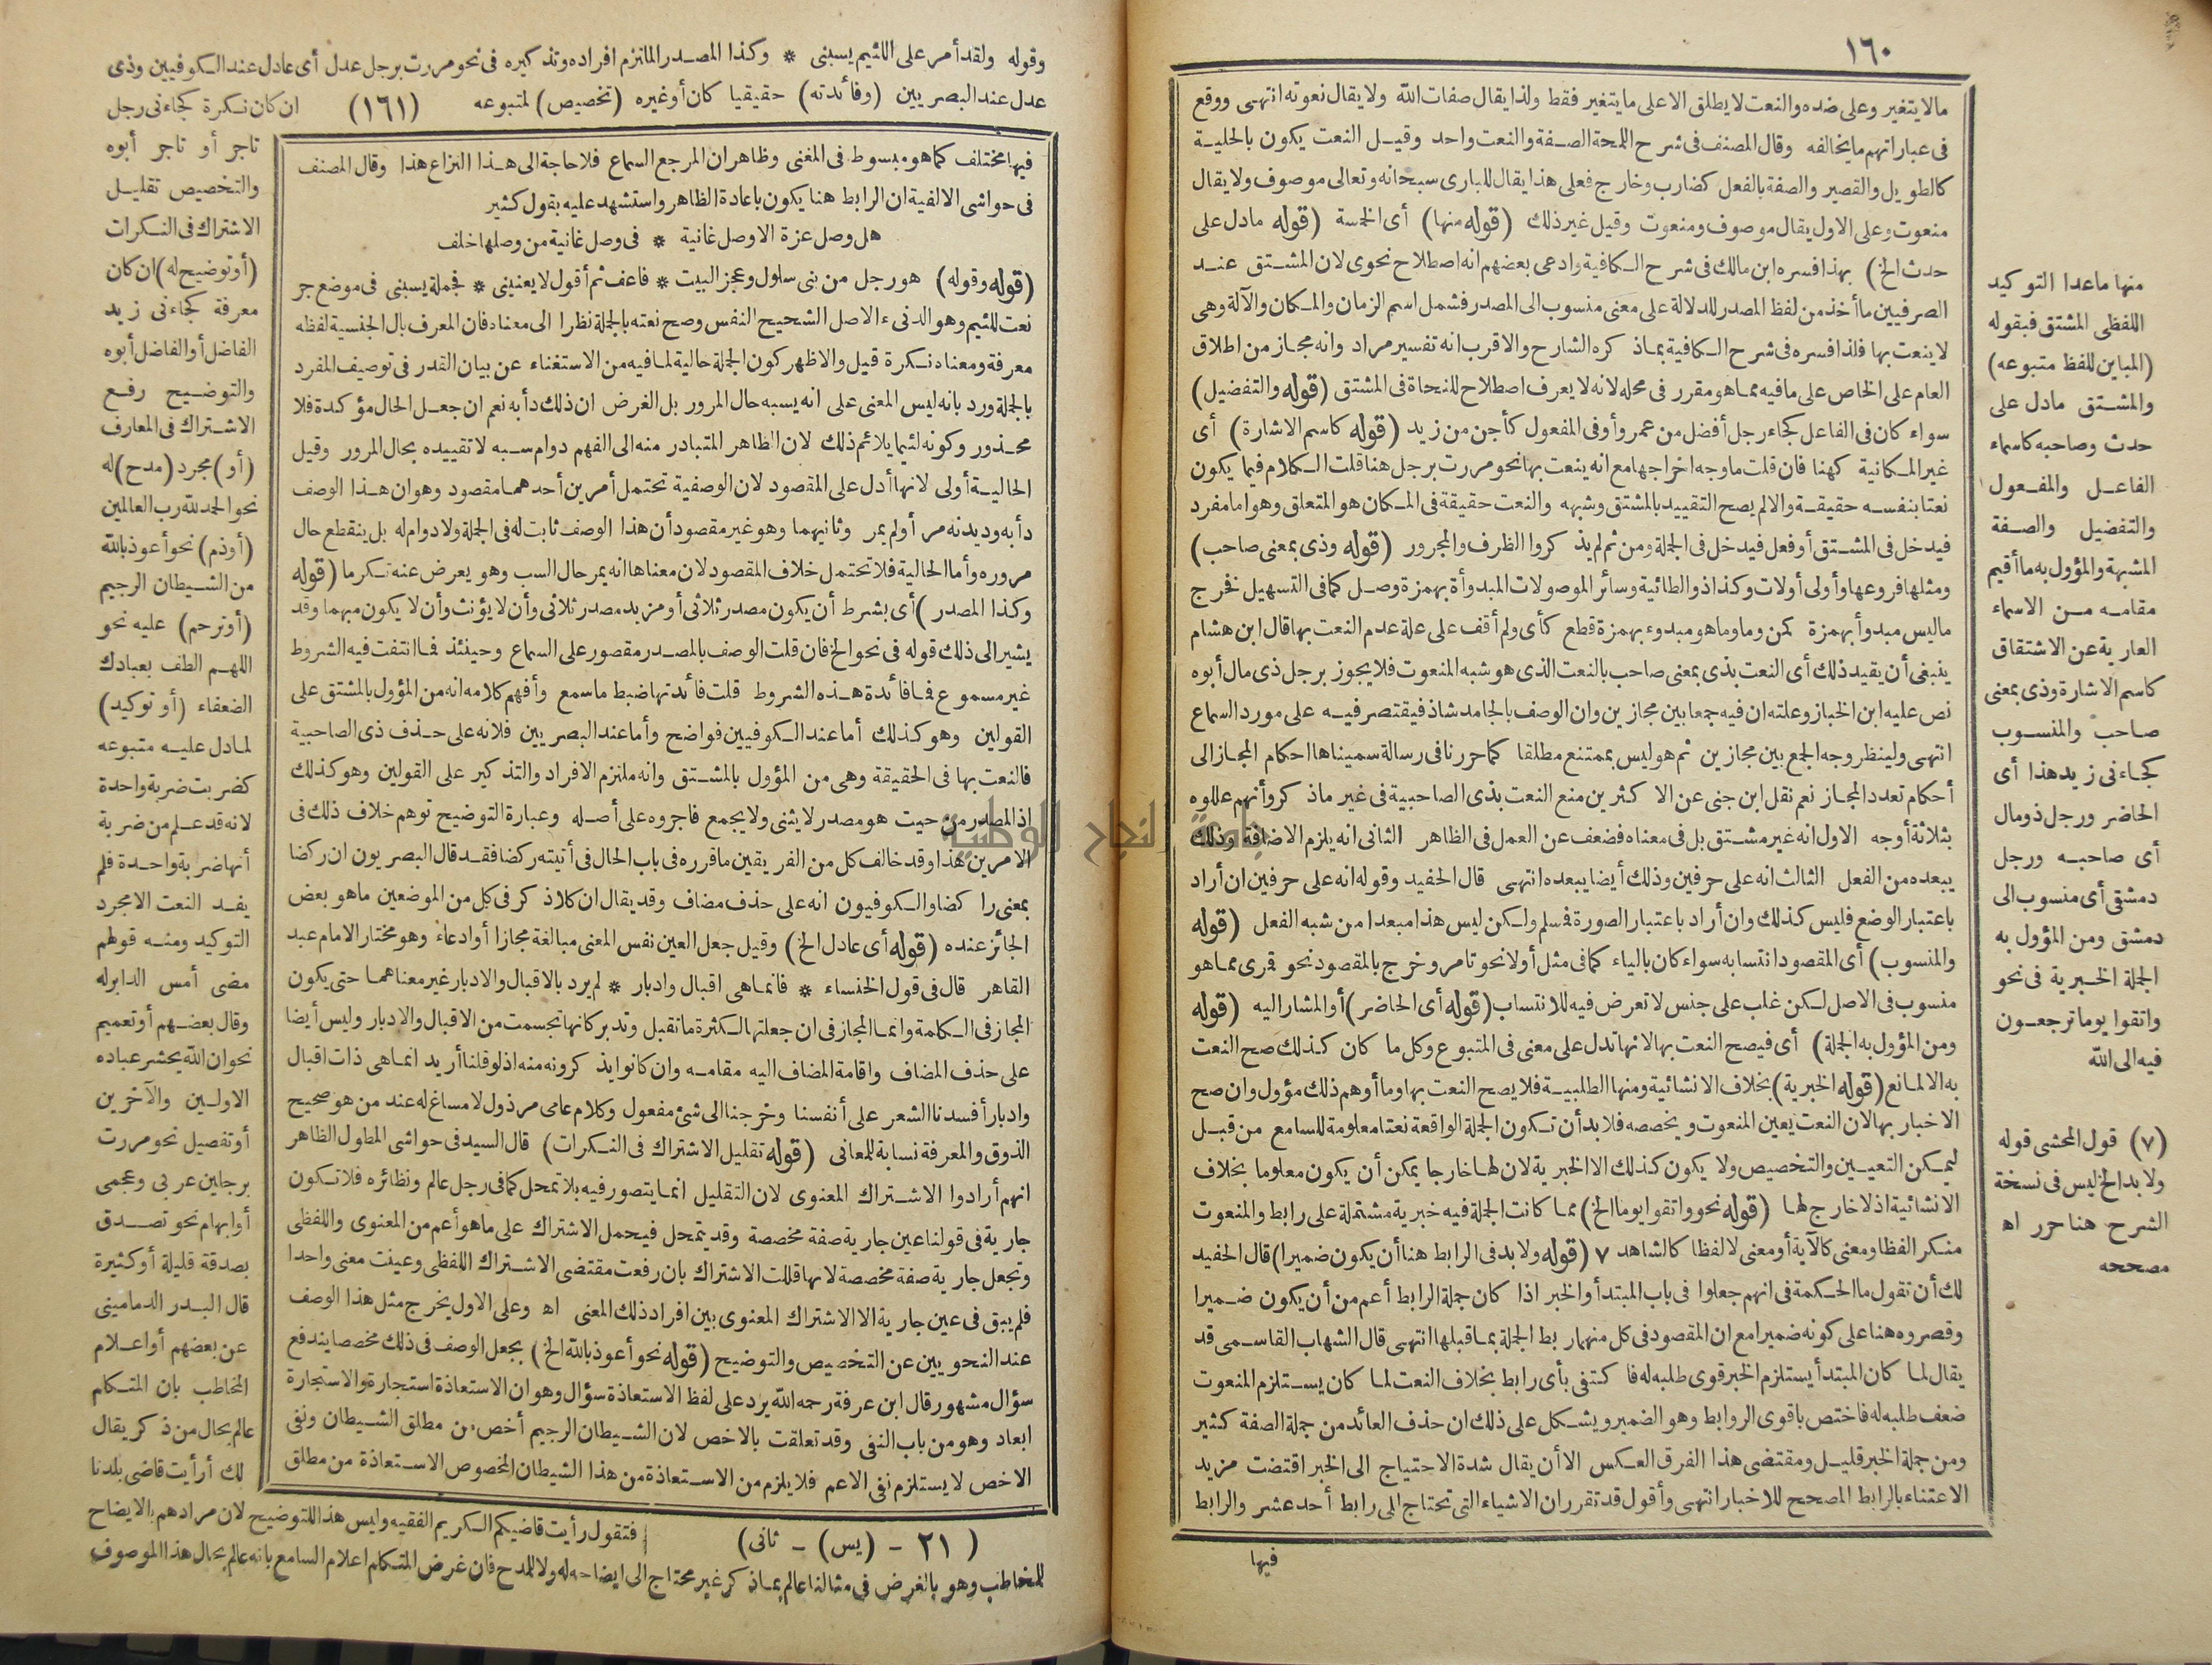 ١٦٠
مالا يتغير وعلى ضده والنعت لا يطلق الا على ما يتغير فقط ولذا يقال صفات الله ولا يقال نعوته انتهى ووقع
فى عباراتهم ما يخالفه وقال المصنف فى شرح اللمحة الصفة والنعت واحد وقيل النعت يكون بالحلية
كالطويل والقصير والصفة بالفعل كضارب وخارج فعلى هذا يقال للبارى سبحانه وتعالى موصوف ولا يقال
منعوت وعلى الاول يقال موصوف ومنعوت وقيل غير ذلك (قوله منها) أى الخمسة (قوله مادل على
حدث الخ) بهذا فسره ابن مالك فى شرح الكافية وادعى بعضهم انه اصطلاح نحوى لان المشتق عند
الصرفيين ما أخذ من لفظ المصدر للدلالة على معنى منسوب الى المصدر فشمل اسم الزمان والمكان والآلة وهى
لا ينعت بها فلذا فسره فى شرح الكافية بماذ كره الشارح والاقرب انه تفسير مراد وانه مجاز من اطلاق
العام على الخاص على ما فيه مما هو مقرر فى محله لانه لا يعرف اصطلاح للنحاة فى المشتق (قوله والتفضيل)
سواء كان فى الفاعل كجاء رجل أفضل من عمرو أو فى المفعول كأجن من زيد (قوله كاسم الاشارة) أى
غير المكانية كهنا فان قلت ما وجه اخراجها مع انه ينعت بها نحو مررت برجل هنا قلت الكلام فيما يكون
نعتا بنفسه حقيقة والا لم يصح التقييد بالمشتق وشبهه والنعت حقيقة فى المكان هو المتعلق وهو اما مفرد
فيدخل فى المشتق أو فعل فيدخل فى الجملة ومن ثم لم يذ كروا الظرف والمجرور (قوله وذى بمعنى صاحب)
ومثلها فروعها وأولى أولات وكذا ذو الطائية وسائر الموصولات المبدوأة بهمزة وصل كما فى التسهيل فخرج
ماليس مبدوأ بهمزة كمن وما وما هو مبدوء بهمزة قطع كأى ولم أقف على علة عدم النعت بها قال ابن هشام
ينبغى أن يقيد ذلك أى النعت بذى بمعنى صاحب بالنعت الذى هو شبه المنعوت فلا يجوز برجل ذى مال أبوه
نص عليه ابن الخباز وعلته ان فيه جمعا بين مجازين وان الوصف بالجامد شاذ فيقتصر فيه على مورد السماع
انتهى ولينظر وجه الجمع بين مجازين ثم هو ليس بممتنع مطلقا كما حررنا فى رسالة سميناها احكام المجاز الى
أحكام تعدد المجاز نعم نقل ابن جنى عن الا كثرين منع النعت بذى الصاحبية فى غير ماذ كروأنهم عللوه
بثلاثة أوجه الاول انه غير مشتق بل فى معناه فضعف عن العمل فى الظاهر الثانى انه يلزم الاضافة وذلك
يبعده من الفعل الثالث انه على حرفين وذلك أيضا يبعده انتهى قال الحفيد وقوله انه على حرفين ان أراد
باعتبار الوضع فليس كذلك وان أراد باعتبار الصورة فسلم ولكن ليس هذا مبعدا من شبه الفعل (قوله
والمنسوب) أى المقصود انتسابه سواء كان بالياء كما فى مثل أولا نحو تامر وخرج بالمقصود نحو قرى مما هو
منسوب فى الاصل لكن غلب على جنس لا تعرض فيه للانتساب (قوله أى الحاضر) أو المشار اليه (قوله
ومن المؤول به الجملة) أى فيصح النعت بها لانها تدل على معنى فى المتبوع وكل ما كان كذلك صح النعت
به الا لمانع (قوله الخبرية) بخلاف الانشائية ومنها الطلبية فلا يصح النعت بها وما أوهم ذلك مؤول وان صح
الاخبار بها لان النعت يعين المنعوت ويخصصه فلا بد أن تكون الجملة الواقعة نعتا معلومة للسامع من قبل
ليمكن التعيين والتخصيص ولا يكون كذلك الا الخبرية لان لها خارجا يمكن أن يكون معلوما بخلاف
الانشائية اذ لا خارج لها (قوله نحو واتقوا يوما الخ) مما كانت الجملة فيه خبرية مشتملة على رابط والمنعوت
منكر الفظا ومعنى كالآية أو معنى لا لفظا كالشاهد ٧ (قوله ولا بد فى الرابط هنا أن يكون ضميرا) قال الحفيد
لك أن تقول ما الحكمة فى انهم جعلوا فى باب المبتدأ والخبر اذا كان جملة الرابط أعم من أن يكون ضميرا
وقصروه هنا على كونه ضميرا مع ان المقصود فى كل منهما ربط الجملة بما قبلها انتهى قال الشهاب القاسمى قد
يقال لما كان المبتدأ يستلزم الخبر قوى طلبه له فا كتفى بأى رابط بخلاف النعت لما كان يستلزم المنعوت
ضعف طلبه له فاختص باقوى الروابط وهو الضمير ويشكل على ذلك ان حذف العائد من جملة الصفة كثير
ومن جملة الخبر قليل ومقتضى هذا الفرق العكس الا أن يقال شدة الاحتياج الى الخبر اقتضت مزيد
الاعتناء بالرابط المصحح للاخبار انتهى وأقول قد تقرر ان الاشياء التى تحتاج الى رابط أحد عشر والرابط
فيها
منها ماعدا التوكيد
اللفظى المشتق فبقوله
(المباين للفظ متبوعه)
والمشتق مادل على
حدث وصاحبه كاسماء
الفاعل والمفعول
والتفضيل والصفة
المشبهة والمؤول به ما أقيم
مقامه من الاسماء
العارية عن الاشتقاق
كاسم الاشارة وذى بمعنى
صاحب والمنسوب
كجاءنى زيد هذا أى
الحاضر ورجل ذو مال
أى صاحبه ورجل
دمشقى أى منسوب الى
دمشق ومن المؤول به
الجملة الخبرية فى نحو
واتقوا يوما ترجعون
فيه الى الله
(٧) قول المحشى قوله
ولا بد الخ ليس فى نسخة
الشرح هنا حرر اه
مصححه
وقوله ولقد أمر على اللئيم يسبنى * وكذا المصدر الملتزم افراده وتذ كيره فى نحو مررت برجل عدل أى عادل عند الكوفيين وذى
عدل عند البصريين (وفائدته) حقيقيا كان أو غيره (تخصيص) لمتبوعه (١٦١) ان كان نكرة كجاءنى رجل
تاجر أو تاجر أبوه
والتخصيص تقليل
الاشتراك فى النكرات
(أو توضيح له) ان كان
معرفة كجاءنى زيد
الفاضل أو الفاضل أبوه
والتوضيح رفع
الاشتراك فى المعارف
(أو) مجرد (مدح) له
نحو الحمد لله رب العالمين
(أو ذم) نحو أعوذ بالله
من الشيطان الرجيم
(أو ترحم) عليه نحو
اللهم الطف بعبادك
الضعفاء (أو توكيد)
لمادل عليه متبوعه
كضربت ضربة واحدة
لانه قد علم من ضربة
أنها ضربة واحدة فلم
يفد النعت الا مجرد
التوكيد ومنه قولهم
مضى أمس الدابر له
وقال بعضهم أو تعميم
نحو ان الله يحشر عباده
الاولين والآخرين
أو تفصيل نحو مررت
برجلين عربى وعجمى
أو ابهام نحو تصدق
بصدقة قليلة أو كثيرة
قال البدر الدمامينى
عن بعضهم أو اعلام
المخاطب بان المتكلم
عالم بحال من ذ كر يقال
لك أرأيت قاضى بلدنا
فيها مختلف كما هو مبسوط فى المغنى وظاهر ان المرجع السماع فلا حاجة الى هذا النزاع هذا وقال المصنف
فى حواشى الالفية ان الرابط هنا يكون باعادة الظاهر واستشهد عليه بقول كثير
هل وصل عزة الا وصل غانية * فى وصل غانية من وصلها خلف
(قوله وقوله) هو رجل من بنى سلول وعجز البيت * فاعف ثم أقول لا يعنينى * فجملة يسبنى فى موضع جر
نعت للئيم وهو الدنىء الاصل الشحيح النفس وصح نعته بالجملة نظرا الى معناه فان المعرف بال الجنسية لفظه
معرفة ومعناه نكرة قيل والاظهر كون الجملة حالية لما فيه من الاستغناء عن بيان القدر فى توصيف المفرد
بالجملة ورد بانه ليس المعنى على انه يسبه حال المرور بل الغرض ان ذلك دأبه نعم ان جعل الحال مؤكدة فلا
محذور وكونه لئيما يلائم ذلك لان الظاهر المتبادر منه الى الفهم دوام سبه لا تقييده بحال المرور وقيل
الحالية أولى لانها أدل على المقصود لان الوصفية تحتمل أمرين أحدهما مقصود وهو ان هذا الوصف
دأبه وديدنه مر أو لم يمر وثانيهما وهو غير مقصود أن هذا الوصف ثابت له فى الجملة ولا دوام له بل ينقطع حال
مروره وأما الحالية فلا تحتمل خلاف المقصود لان معناها انه يمر حال السب وهو يعرض عنه تكرما (قوله
وكذا المصدر) أى بشرط أن يكون مصدر ثلاثى أو مزيد مصدر ثلاثى وأن لا يؤنث وأن لا يكون ميميا وقد
يشير الى ذلك قوله فى نحو الخ فان قلت الوصف بالمصدر مقصور على السماع وحينئذ فما انتفت فيه الشروط
غير مسموع فما فائدة هذه الشروط قلت فائدتها ضبط ما سمع وأفهم كلامه انه من المؤول بالمشتق على
القولين وهو كذلك أما عند الكوفيين فواضح وأما عند البصريين فلانه على حذف ذى الصاحبية
فالنعت بها فى الحقيقة وهى من المؤول بالمشتق وانه ملتزم الافراد والتذ كير على القولين وهو كذلك
اذ المصدر من حيث هو مصدر لا يثنى ولا يجمع فاجروه على أصله وعبارة التوضيح توهم خلاف ذلك فى
الامرين هذا وقد خالف كل من الفريقين ما قرره فى باب الحال فى أتيته ركضا فقد قال البصريون ان ركضا
بمعنى را كضا والكوفيون انه على حذف مضاف وقد يقال ان كلا ذ كر فى كل من الموضعين ما هو بعض
الجائز عنده (قوله أى عادل الخ) وقيل جعل العين نفس المعنى مبالغة مجازا أو ادعاء وهو مختار الامام عبد
القاهر قال فى قول الخنساء * فانما هى اقبال وادبار * لم يرد بالاقبال والادبار غير معناهما حتى يكون
المجاز فى الكلمة وانما المجاز فى ان جعلتها لكثرة ما تقبل وتدبر كانها تجسمت من الاقبال والادبار وليس أيضا
على حذف المضاف واقامة المضاف اليه مقامه وان كانوا يذ كرونه منه اذ لو قلنا أريد انما هى ذات اقبال
وادبار أفسدنا الشعر على أنفسنا وخرجنا الى شئ مفعول وكلام عامى مرذول لا مساغ له عند من هو صحيح
الذوق والمعرفة نسابة للمعانى (قوله تقليل الاشتراك فى النكرات) قال السيد فى حواشى المطول الظاهر
انهم أرادوا الاشتراك المعنوى لان التقليل انما يتصور فيه بلا تمحل كما فى رجل عالم ونظائره فلا تكون
جارية فى قولنا عين جارية صفة مخصصة وقد يتمحل فيحمل الاشتراك على ما هو أعم من المعنوى واللفظى
وتجعل جارية صفة مخصصة لانها قللت الاشتراك بان رفعت مقتضى الاشتراك اللفظى وعينت معنى واحدا
فلم يبق فى عين جارية الا الاشتراك المعنوى بين افراد ذلك المعنى اه وعلى الاول يخرج مثل هذا الوصف
عند النحويين عن التخصيص والتوضيح (قوله نحو أعوذ بالله الخ) بجعل الوصف فى ذلك مخصصا يندفع
سؤال مشهور قال ابن عرفة رحمه الله يرد على لفظ الاستعاذة سؤال وهو ان الاستعاذة استجارة والاستجارة
ابعاد وهو من باب النفى وقد تعلقت بالاخص لان الشيطان الرجيم أخص من مطلق الشيطان ونفى
الاخص لا يستلزم نفى الاعم فلا يلزم من الاستعاذة من هذا الشيطان المخصوص الاستعاذة من مطلق
(٢١ - (يس) - ثانى)
فتقول رأيت قاضيكم الكريم الفقيه وليس هذا للتوضيح لان مرادهم بالايضاح
للمخاطب وهو بالغرض فى مثالنا عالم بماذ كر غير محتاج الى ايضاحه له ولا للمدح فان غرض المتكلم اعلام السامع بانه عالم بحال هذا الموصوف